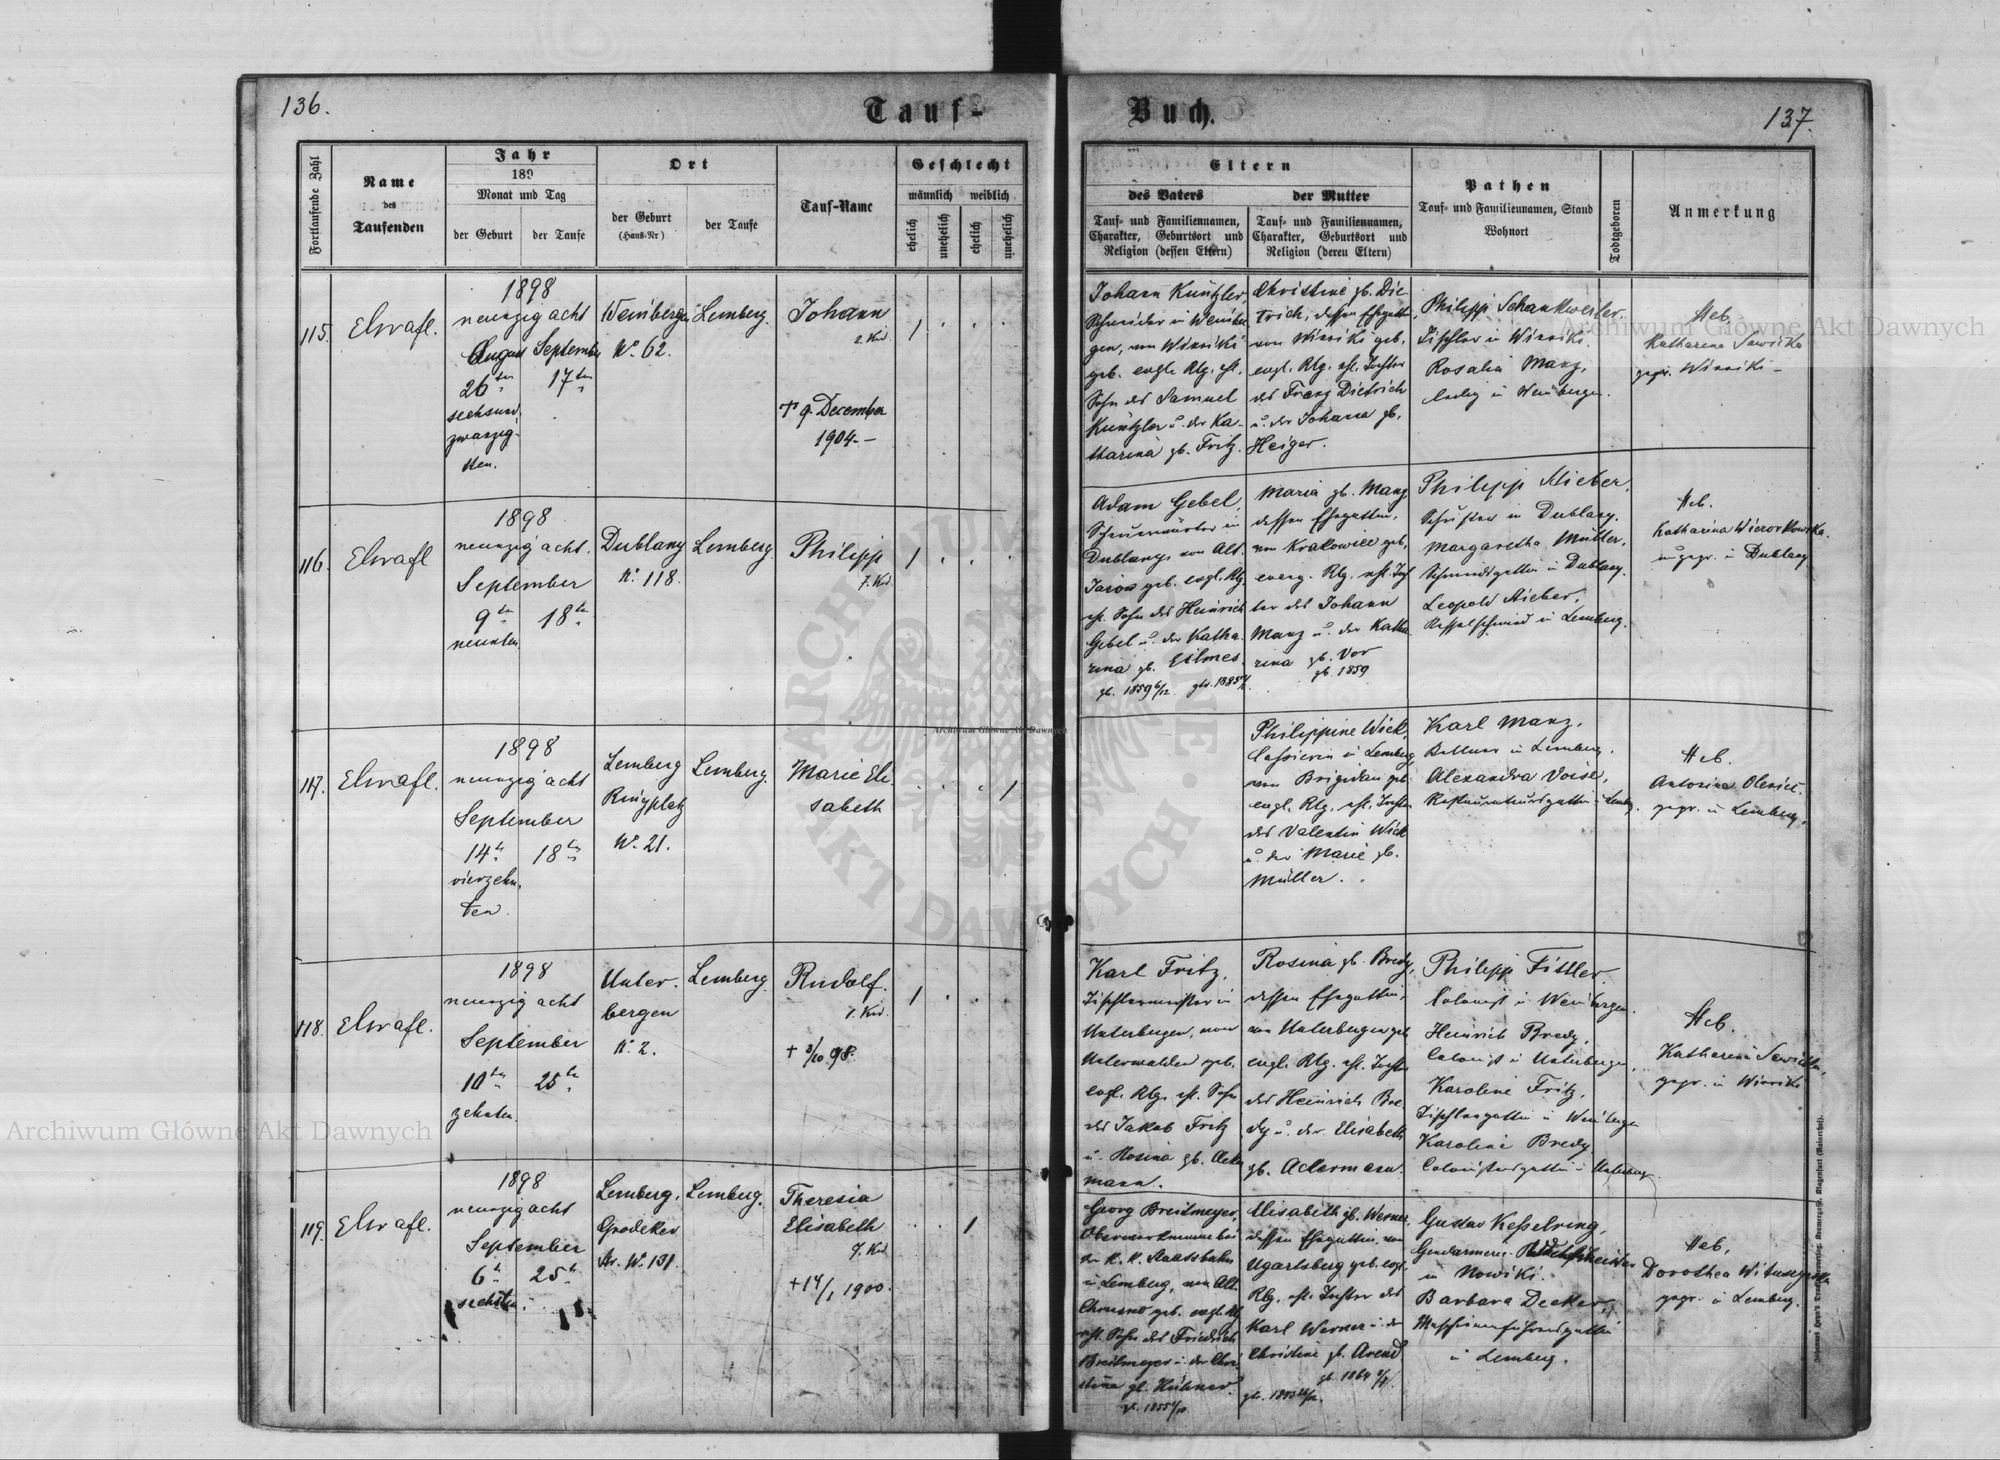 136.
Tauf-
Buch.
137.
Fortlaufende Zahl
Name
des
Taufenden
Jahr
189
Monat und Tag
der Geburt
der Taufe
Ort
der Geburt
(Haus-Nr)
der Taufe
Tauf-Name
Geschlecht
männlich
weiblich
ehelich
unehelich
ehelich
unehelich
Eltern
des Vaters
Tauf- und Familiennamen,
Charakter, Geburtsort und
Religion (dessen Eltern)
der Mutter
Tauf- und Familiennamen,
Charakter, Geburtsort und
Religion (deren Eltern)
Pathen
Tauf- und Familiennamen, Stand
Wohnort
Todtgeboren
Anmerkung
115.
1898
neunzig acht
August
September
26ten
17ten
sechsund
zwanzig-
sten.
Weinbergen
No. 62.
Lemberg.
Johann
2. Kind
† 9. December
1904.-
1
Johann Küntzler,
Schneider in Weinber
gen, von Winniki
geb. evgl. Rlg. ehl.
Sohn des Samuel
Küntzler u. der Ka-
tharina gb. Fritz.
Christine gb. Die-
trich, dessen Ehegattin
von Winniki geb.
evgl. Rlg. ehl. Tochter
des Franz Dietrich
u. der Johanna gb.
Heiger.
Philipp Schankweiler
Tischler in Winniki.
Rosalia Manz,
ledig in Weinbergen.
Heb.
Katharina Sawicka
gepr. Winniki -
116.
1898
neunzig acht.
September
9te
18te
neunten
Dublany
No. 118.
Lemberg.
Philipp
7. Kind
1
Adam Gebel,
in
Dublany, von Alt-
Jarow geb. evgl. Rlg.
ehl. Sohn des Heinrich
Gebel u. der Katha-
rina gb. Eilmes.
Maria gb. Manz
dessen Ehegattin,
von Krakowiec geb.
evang. Rlg. ehl. Toch
ter des Johann
Manz u. der Katha
rina gb. Vor
gb. 1859
Philipp Rieber,
Schuster in Dublany.
Margaretha Müller,
Schmiedsgattin in Dublany.
Leopold Rieber,
Kesselschmied in Lemberg.
Heb.
Katharina
gepr. in Dublany
117.
1898
neunzig acht
September
14te
18te
vierzehn-
ten.
Lemberg
Ringplatz
No. 21.
Lemberg.
Marie Eli-
sabeth
1
Philippine Wick,
Cassierin in Lemberg
von Brigidau geb.
evgl. Rlg. ehl. Tochter
des Valentin Wick
u. der Marie gb.
Müller.
Karl Manz,
Kellner in Lemberg.
Alexandra Voise,
Restaurateursgattin in Lemberg
Heb.
Antonina
gepr. in Lemberg.
118.
1898
neunzig acht
September
10ten
25te
zehnten
Unter-
bergen
No. 2.
Lemberg
Rudolf.
1. Kind
† 3/10 98.
1
Karl Fritz,
Tischlermeister in
Unterbergen, von
Unterwalden geb.
evgl. Rlg. ehl. Sohn
des Jakob Fritz
u. Rosina gb. Acker
mann.
Rosina gb. Bredy,
dessen Ehegattin,
von Unterbergen geb.
evgl. Rlg. ehl. Tochter
des Heinrich Bre
dy u. der Elisabeth
gb. Ackermann.
Philipp Fittler
Colonist in Weinbergen.
Heinrich Bredy,
Colonist in Unterbergen,
Karoline Fritz,
Tischlersgattin in Weinbergen
Karoline Bredy
Colonistensgattin in Unterbergen
Heb.
Katharina Sawicka,
gepr. in Winniki
119.
1898
neunzig acht
September
6te
25te
sechsten.
Lemberg,
Grodeker
Str. No. 131.
Lemberg.
Theresia
Elisabeth
7. Kind
† 14/1 1900.
1
Georg Breitmeyer,
bei
der K. K. Staatsbahn
in Lemberg, von Alt-
Chrusno geb. evgl. Rlg
ehl. Sohn des Friedrich
Breitmeyer u. der Chri-
stina gb. Hübner.
Elisabeth gb. Werner,
dessen Ehegattin, von
Ugartsberg geb. evgl.
Rlg. ehl. Tochter des
Karl Werner u. der
Christine gb. Arend
Gustav Kesselring,
Gendarmerie
in Nowiki.
Barbara Decker,
Maschinenführersgattin
in Lemberg.
Heb.
Dorothea
gepr. in Lemberg.
Archiwum Główne Akt Dawnych
Archiwum Główne Akt Dawnych
Archiwum Główne Akt Dawnych